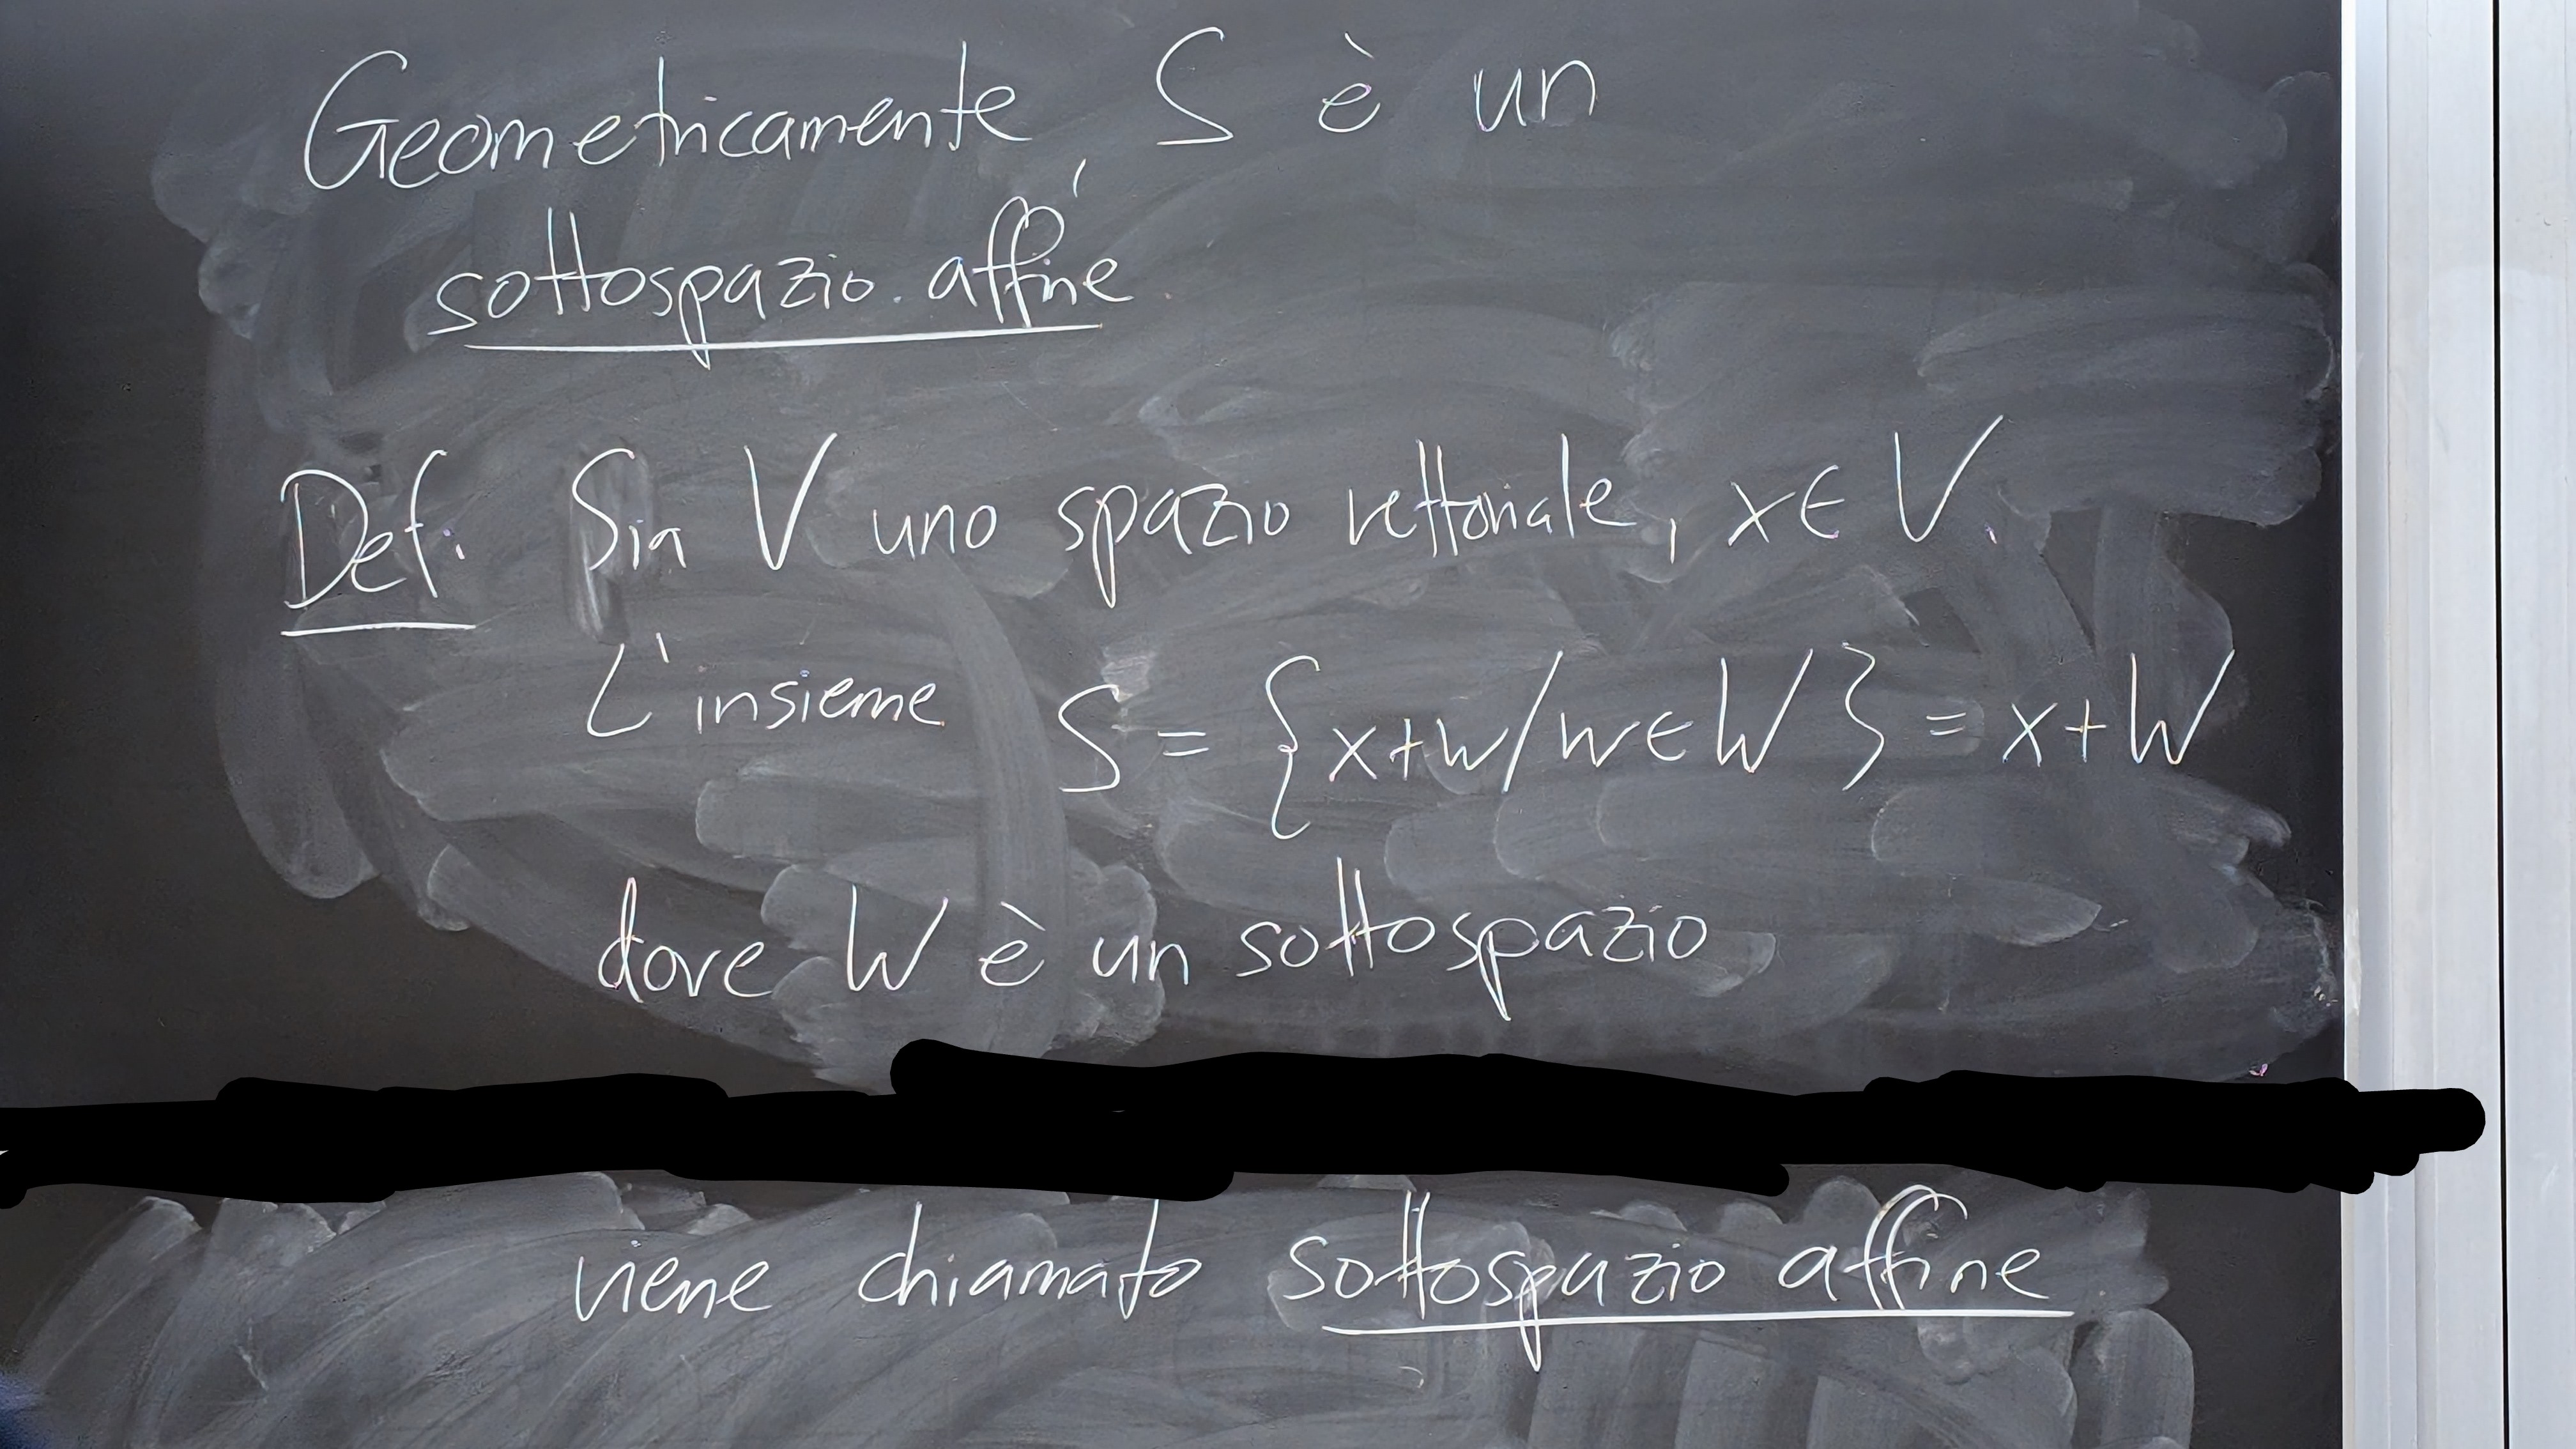 Geometricamente, S è un
sottospazio affine
Def. Sia V uno spazio vettoriale, x ∈ V.
L'insieme S = {x+w / w ∈ W} = x+W
dove W è un sottospazio
viene chiamato sottospazio affine